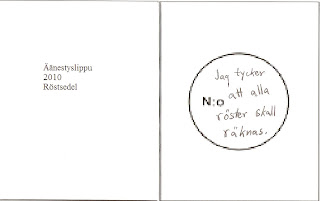 Äänestyslippu
2010
Röstsedel
Jag tycker
N:o att alla
röster skall
räknas.